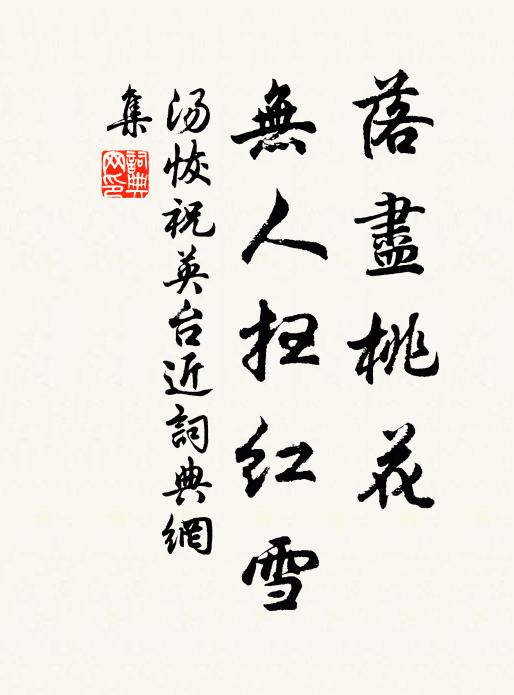 落盡桃花
無人扫红雪
汤恢祝英台近詞典網
集
詞典
网印